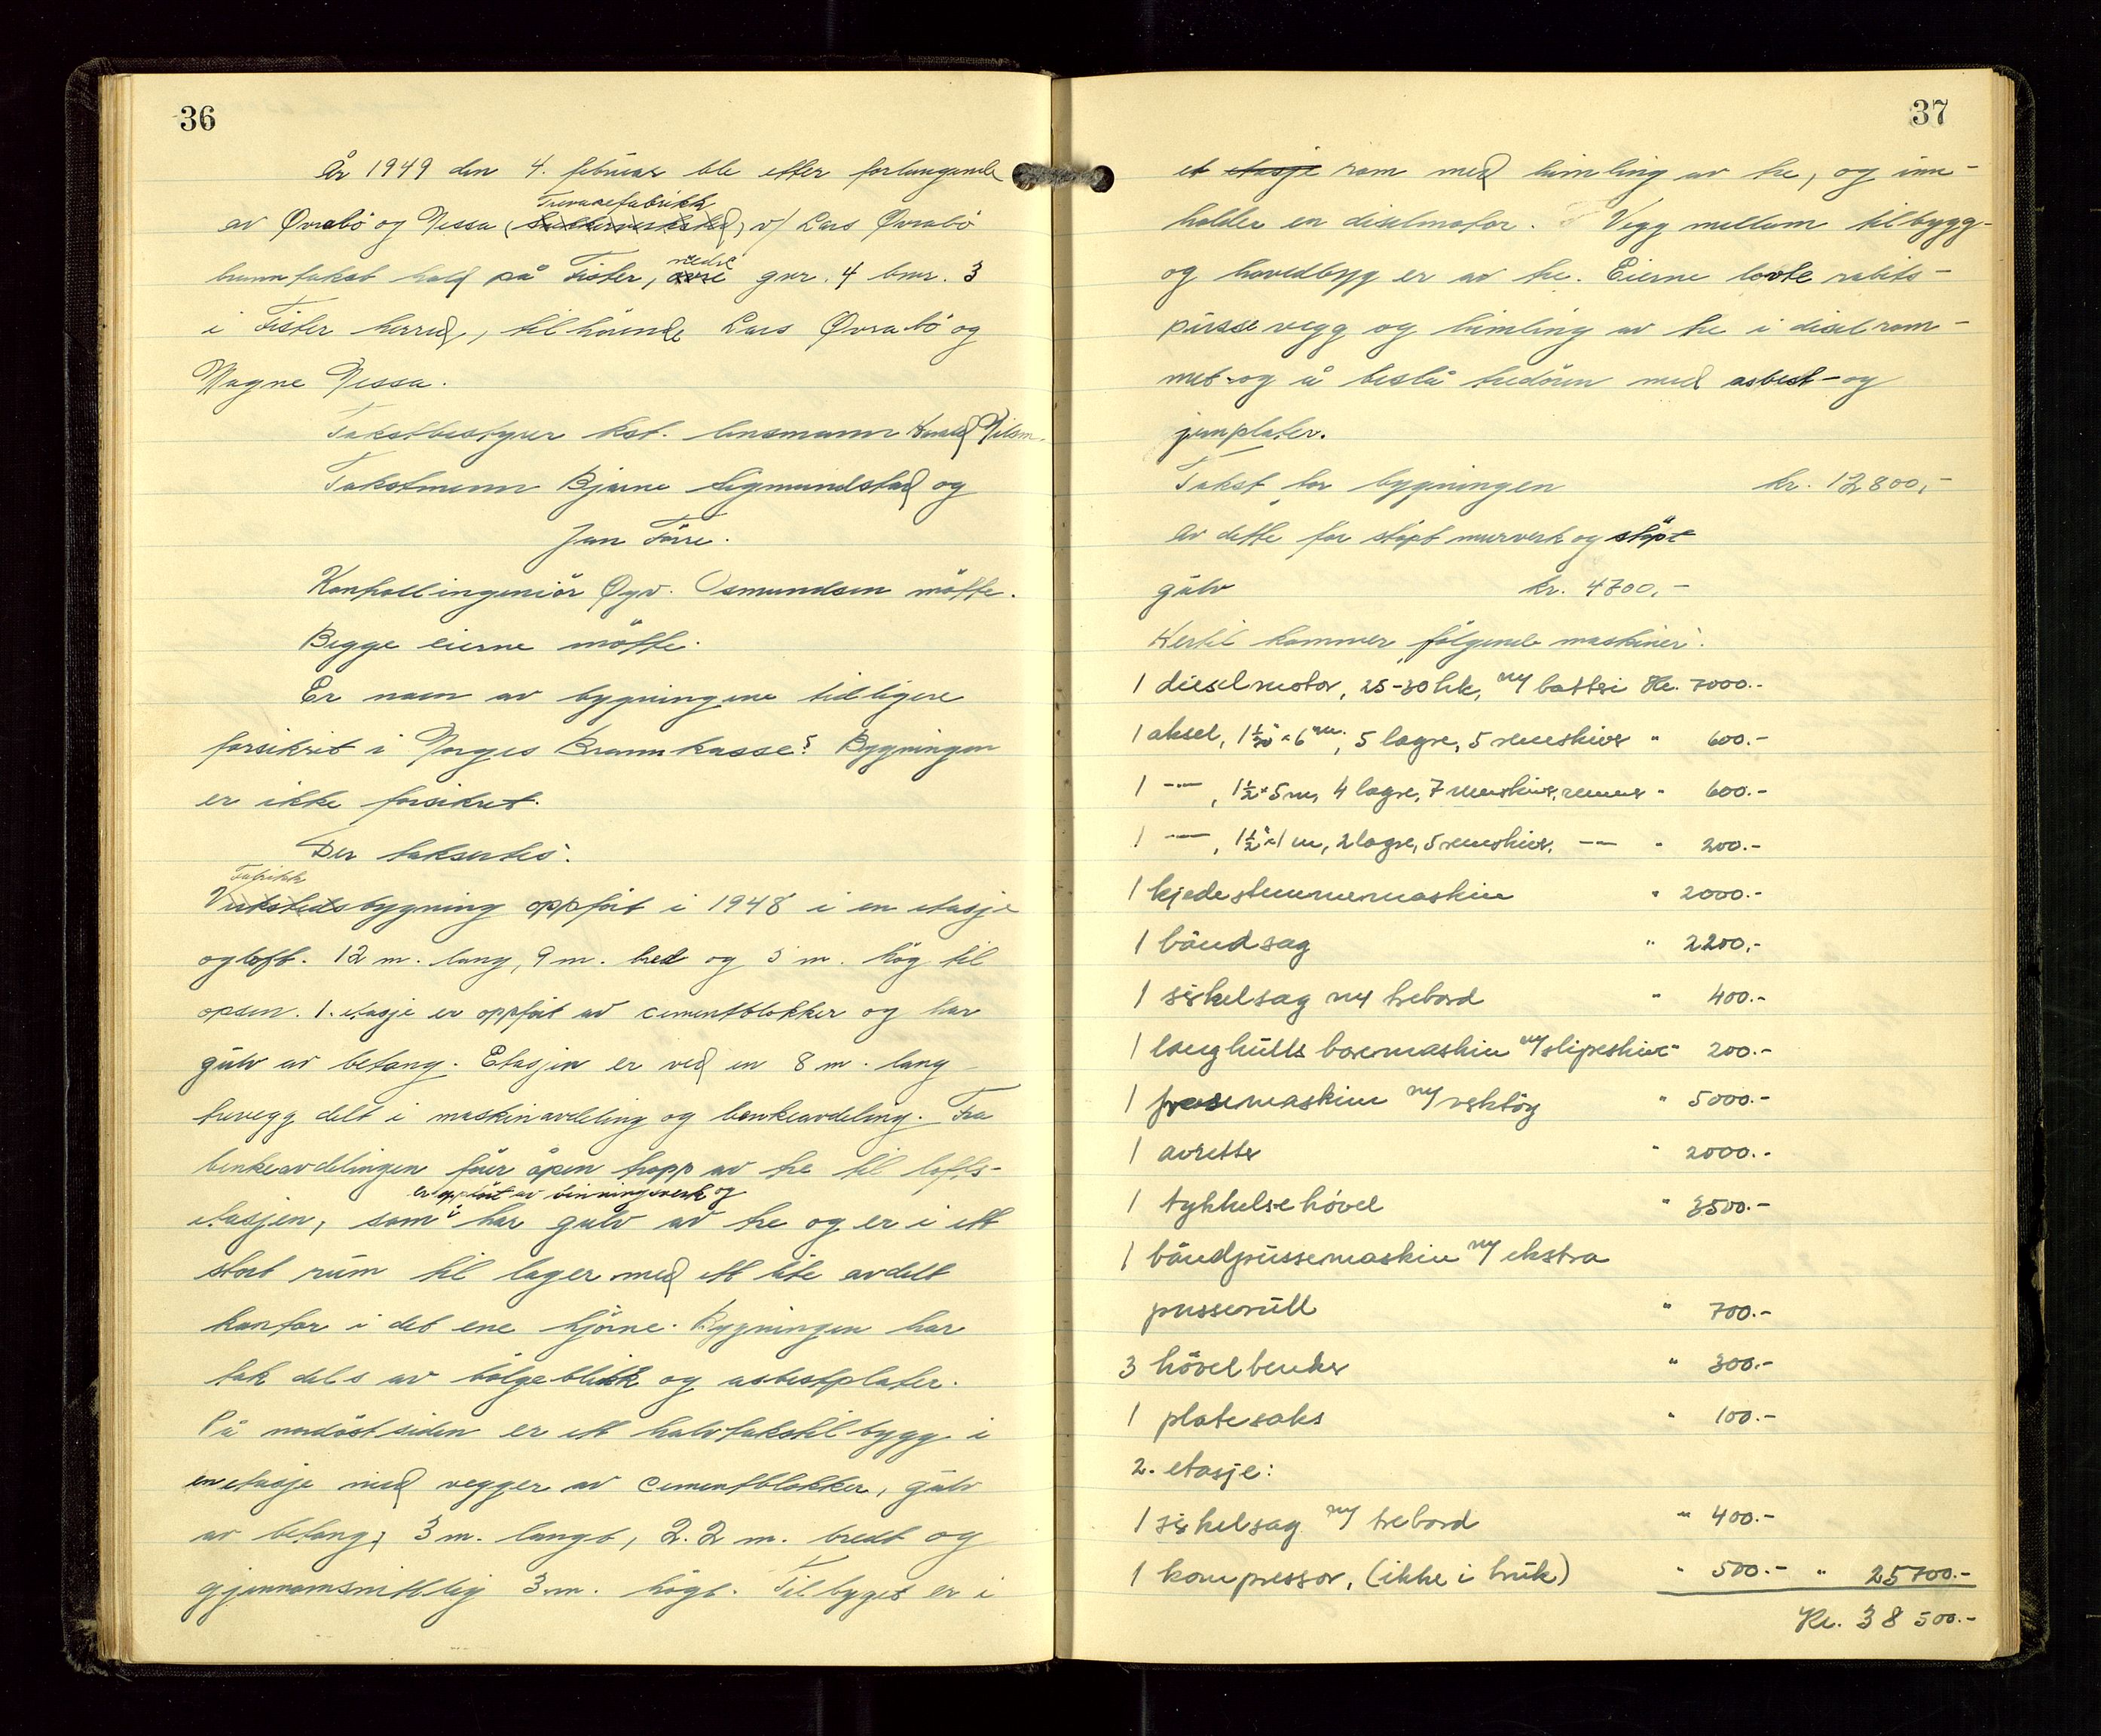 36
År 1949 den 4. februar ble etter forlangende
Trevarefabrikk
av Øvrabö og Nessa v/ Lars Øvrabö
nedre
branntakst hold på Fister, övre gnr. 4 bnr. 3
i Fister herred, tilhörende Lars Øvrabö og
Magne Nessa.
Takstbestyrer kst. lensmann Harald Nilsen.
Takstmenn Bjarne Sigmundstad og
Jan Törre.
Kontrollingeniör Øyv. Osmundsen mötte.
Begge eierne mötte.
Er noen av bygningene tidligere
forsikret i Norges Brannkasse? Bygningen
er ikke forsikret.
Der taksertes:
Fabrikk
Verkstedsbygning oppfört i 1948 i en etasje
og loft. 12 m. lang, 9 m. bred og 5 m. hög til
opsen. 1. etasje er oppfört av cementblokker og har
gulv av betong. Etasjen er ved en 8 m. lang
trevegg delt i maskinavdeling og benkeavdeling. Fra
benkeavdelingen förer åpen trapp av tre til lofts-
er oppfört av binningsverk og
etasjen, som har gulv av tre og er i ett
stort rum til lager med ett lite avdelt
kontor i det ene hjörne. Bygningen har
tak dels av bölgeblikk og asbestplater.
På nordöstsiden er ett halvtakstilbygg i
en etasje med vegger av cementblokker, gulv
av betong; 3 m. langt, 2.2 m. bredt og
gjennomsnittlig 3 m. högt. Tilbyget er i
37
et etasje rom med himling av tre, og inne-
holder en diselmotor. Vegg mellom tilbygg-
og hovedbygg er av tre. Eierne lovte rabits-
pusse vegg og himling av tre i diselrom-
met og å beslå tredören med asbest- og
jernplater.
Takst for bygningen kr. 12800,-
Av dette for stöpt murverk og stöpt
gulv kr. 4700,-
Hertil kommer fölgende maskiner:
1 dieselmotor, 25-30 hk, m/ batteri Kr. 7000.-
1 aksel, 5 lagre, 5 remskiver " 600.-
1 -"-, 1½" x 5 m, 4 lagre, 7 remskiver, remmer " 600.-
1 -"-, 1½" x 1 m, 2 lagre, 5 remskiver, -"- " 200.-
1 kjedestemmemaskin " 2000.-
1 båndsag " 2200.-
1 sirkelsag m/ trebord " 400.-
1 langhulls boremaskin m/ slipeskive " 200.-
1 fresemaskin m/ verktöy " 5000.-
1 avretter " 2000.-
1 tykkelsehövel " 3500.-
1 båndpussemaskin m/ ekstra
pusserull " 700.-
3 hövelbenker " 300.-
1 platesaks " 100.-
2. etasje:
1 sirkelsag m/ trebord " 400.-
1 kompressor, (ikke i bruk) " 500.- " 25700.-
Kr. 38500.-